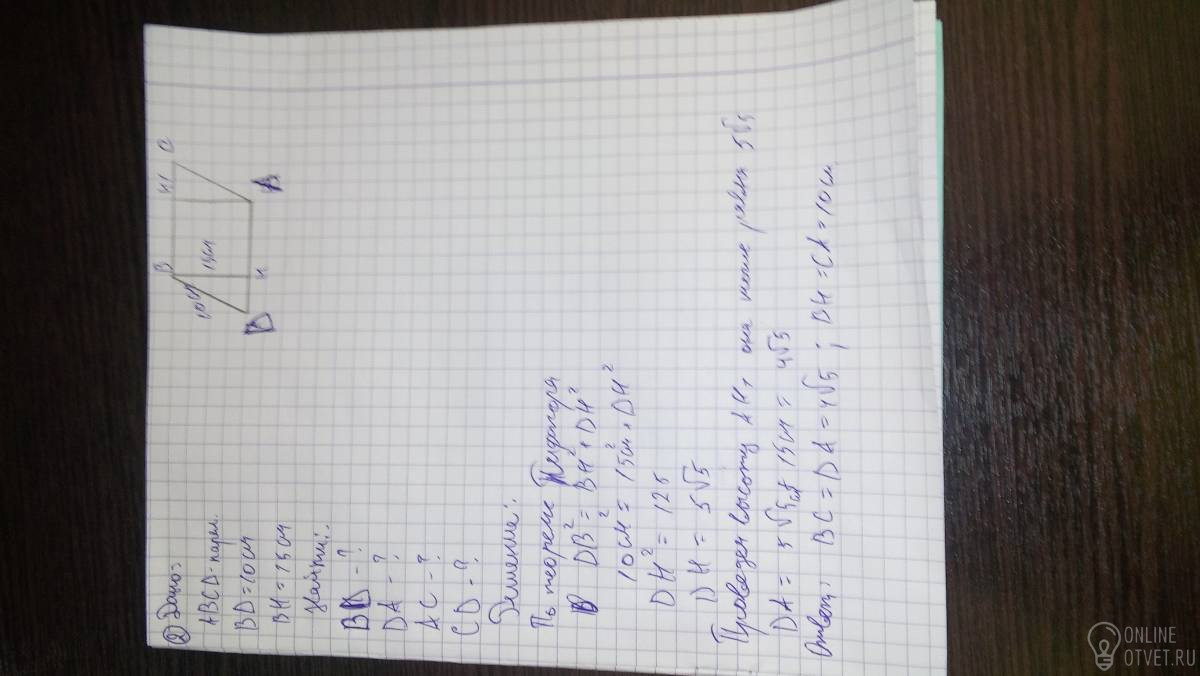 ② Дано:
ABCD - парал.
BD = 10 см
BH = 15 см
Найти:
BD - ?
DA - ?
AC - ?
CD - ?
Решение:
По теореме Пифагора
DB² = BH² + DH²
10 см² = 15 см² + DH²
DH² = 125
DH = 5√5
Проведем высоту AH₁ она также равна 5√5
DA = 5√5 см 15 см = 4√5
Ответ: BC = DA = 4√5 ; BH = CA = 10 см.
B H1 C
10 см 15 см
D H A
ONLINE
OTVET.RU